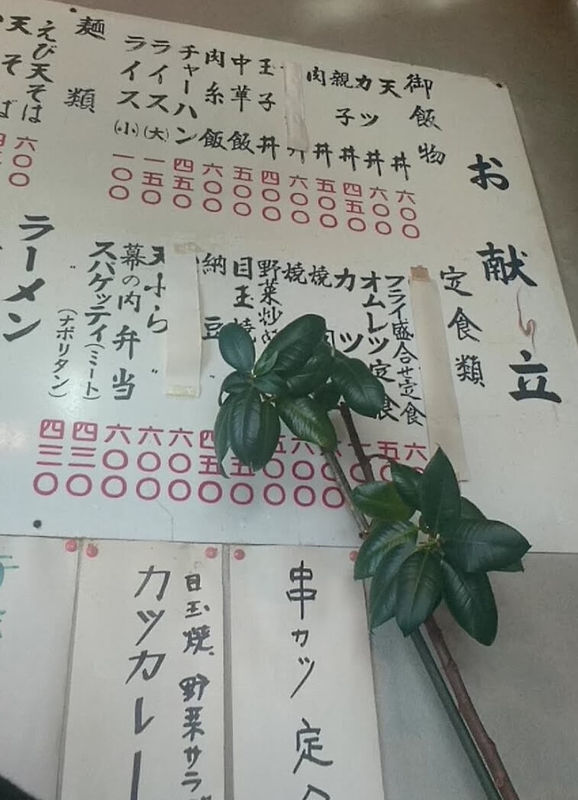 お献立
御飯物
天丼 六〇〇
カツ丼 六〇〇
親子丼 四五〇
肉丼 五〇〇
丼 六〇〇
玉子丼 四〇〇
中華飯 五〇〇
肉糸飯 六〇〇
チャーハン 四五〇
ライス(大) 一五〇
ライス(小) 一〇〇
麺類
えび天そば 六〇〇
天そば
定食類
フライ盛合せ定食 六〇〇
オムレツ定食
カツ
焼肉
焼
野菜炒め
目玉焼
納豆 四五〇
天ぷら〃 六〇〇
幕の内弁当 六〇〇
スパゲッティ(ミート) 四三〇
〃(ナポリタン) 四三〇
ラーメン
串カツ定
目玉焼、野菜サラダ
カツカレー